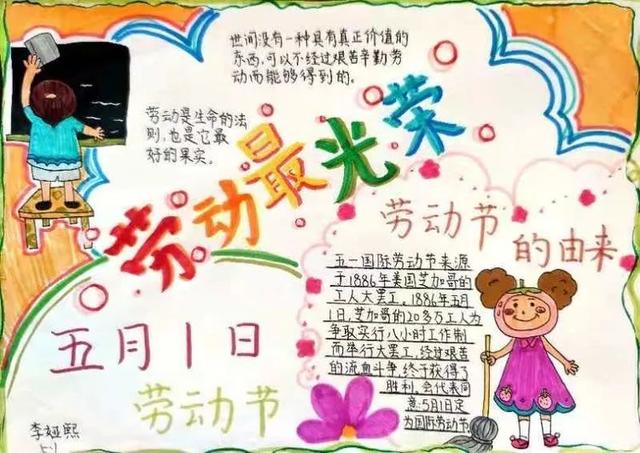 世间没有一种具有真正价值的
东西,可以不经过艰苦辛勤劳
动而能够得到的。
劳动是生命的法
则,也是它最
好的果实。
劳动最光荣
劳动节
的由来
五一国际劳动节来源
于1886年美国芝加哥的
工人大罢工。1886年五月
1日,芝加哥的20多万工人为
争取实行八小时工作制
而举行大罢工,经过艰苦
的流血斗争,终于获得了
胜利,会代表同
意5月1日定
为国际劳动节
五月1日
劳动节
李娅熙